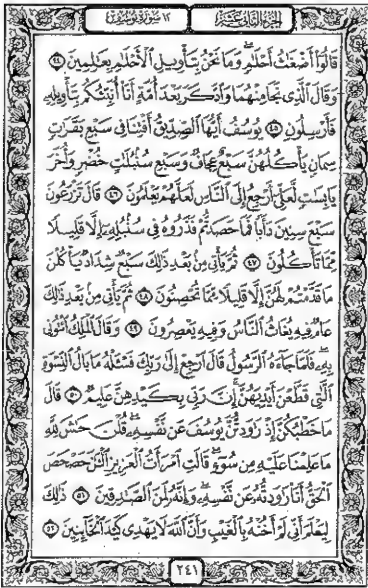 الجزء الثاني عشر
١٢ سورة يوسف
قَالُوٓا۟ أَضْغَـٰثُ أَحْلَـٰمٍ ۖ وَمَا نَحْنُ بِتَأْوِيلِ ٱلْأَحْلَـٰمِ بِعَـٰلِمِينَ ٤٤
وَقَالَ ٱلَّذِى نَجَا مِنْهُمَا وَٱدَّكَرَ بَعْدَ أُمَّةٍ أَنَا۠ أُنَبِّئُكُم بِتَأْوِيلِهِۦ
فَأَرْسِلُونِ ٤٥ يُوسُفُ أَيُّهَا ٱلصِّدِّيقُ أَفْتِنَا فِى سَبْعِ بَقَرَٰتٍ
سِمَانٍ يَأْكُلُهُنَّ سَبْعٌ عِجَافٌ وَسَبْعِ سُنۢبُلَـٰتٍ خُضْرٍ وَأُخَرَ
يَابِسَـٰتٍ لَّعَلِّىٓ أَرْجِعُ إِلَى ٱلنَّاسِ لَعَلَّهُمْ يَعْلَمُونَ ٤٦ قَالَ تَزْرَعُونَ
سَبْعَ سِنِينَ دَأَبًا فَمَا حَصَدتُّمْ فَذَرُوهُ فِى سُنۢبُلِهِۦٓ إِلَّا قَلِيلًا
مِّمَّا تَأْكُلُونَ ٤٧ ثُمَّ يَأْتِى مِنۢ بَعْدِ ذَٰلِكَ سَبْعٌ شِدَادٌ يَأْكُلْنَ
مَا قَدَّمْتُمْ لَهُنَّ إِلَّا قَلِيلًا مِّمَّا تُحْصِنُونَ ٤٨ ثُمَّ يَأْتِى مِنۢ بَعْدِ ذَٰلِكَ
عَامٌ فِيهِ يُغَاثُ ٱلنَّاسُ وَفِيهِ يَعْصِرُونَ ٤٩ وَقَالَ ٱلْمَلِكُ ٱئْتُونِى
بِهِۦ ۖ فَلَمَّا جَآءَهُ ٱلرَّسُولُ قَالَ ٱرْجِعْ إِلَىٰ رَبِّكَ فَسْـَٔلْهُ مَا بَالُ ٱلنِّسْوَةِ
ٱلَّـٰتِى قَطَّعْنَ أَيْدِيَهُنَّ ۚ إِنَّ رَبِّى بِكَيْدِهِنَّ عَلِيمٌ ٥٠ قَالَ
مَا خَطْبُكُنَّ إِذْ رَٰوَدتُّنَّ يُوسُفَ عَن نَّفْسِهِۦ ۚ قُلْنَ حَـٰشَ لِلَّهِ
مَا عَلِمْنَا عَلَيْهِ مِن سُوٓءٍ ۚ قَالَتِ ٱمْرَأَتُ ٱلْعَزِيزِ ٱلْـَٔـٰنَ حَصْحَصَ
ٱلْحَقُّ أَنَا۠ رَٰوَدتُّهُۥ عَن نَّفْسِهِۦ وَإِنَّهُۥ لَمِنَ ٱلصَّـٰدِقِينَ ٥١ ذَٰلِكَ
لِيَعْلَمَ أَنِّى لَمْ أَخُنْهُ بِٱلْغَيْبِ وَأَنَّ ٱللَّهَ لَا يَهْدِى كَيْدَ ٱلْخَآئِنِينَ ٥٢
٢٤١